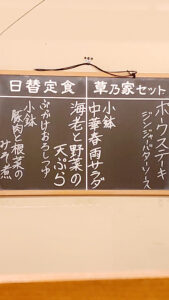 日替定食
海老と野菜の
天ぷら
ぶっかけおろしつゆ
小鉢
豚肉と根菜の
みそ煮
草乃家セット
ポークステーキ
ジンジャーバターソース
小鉢
中華春雨サラダ